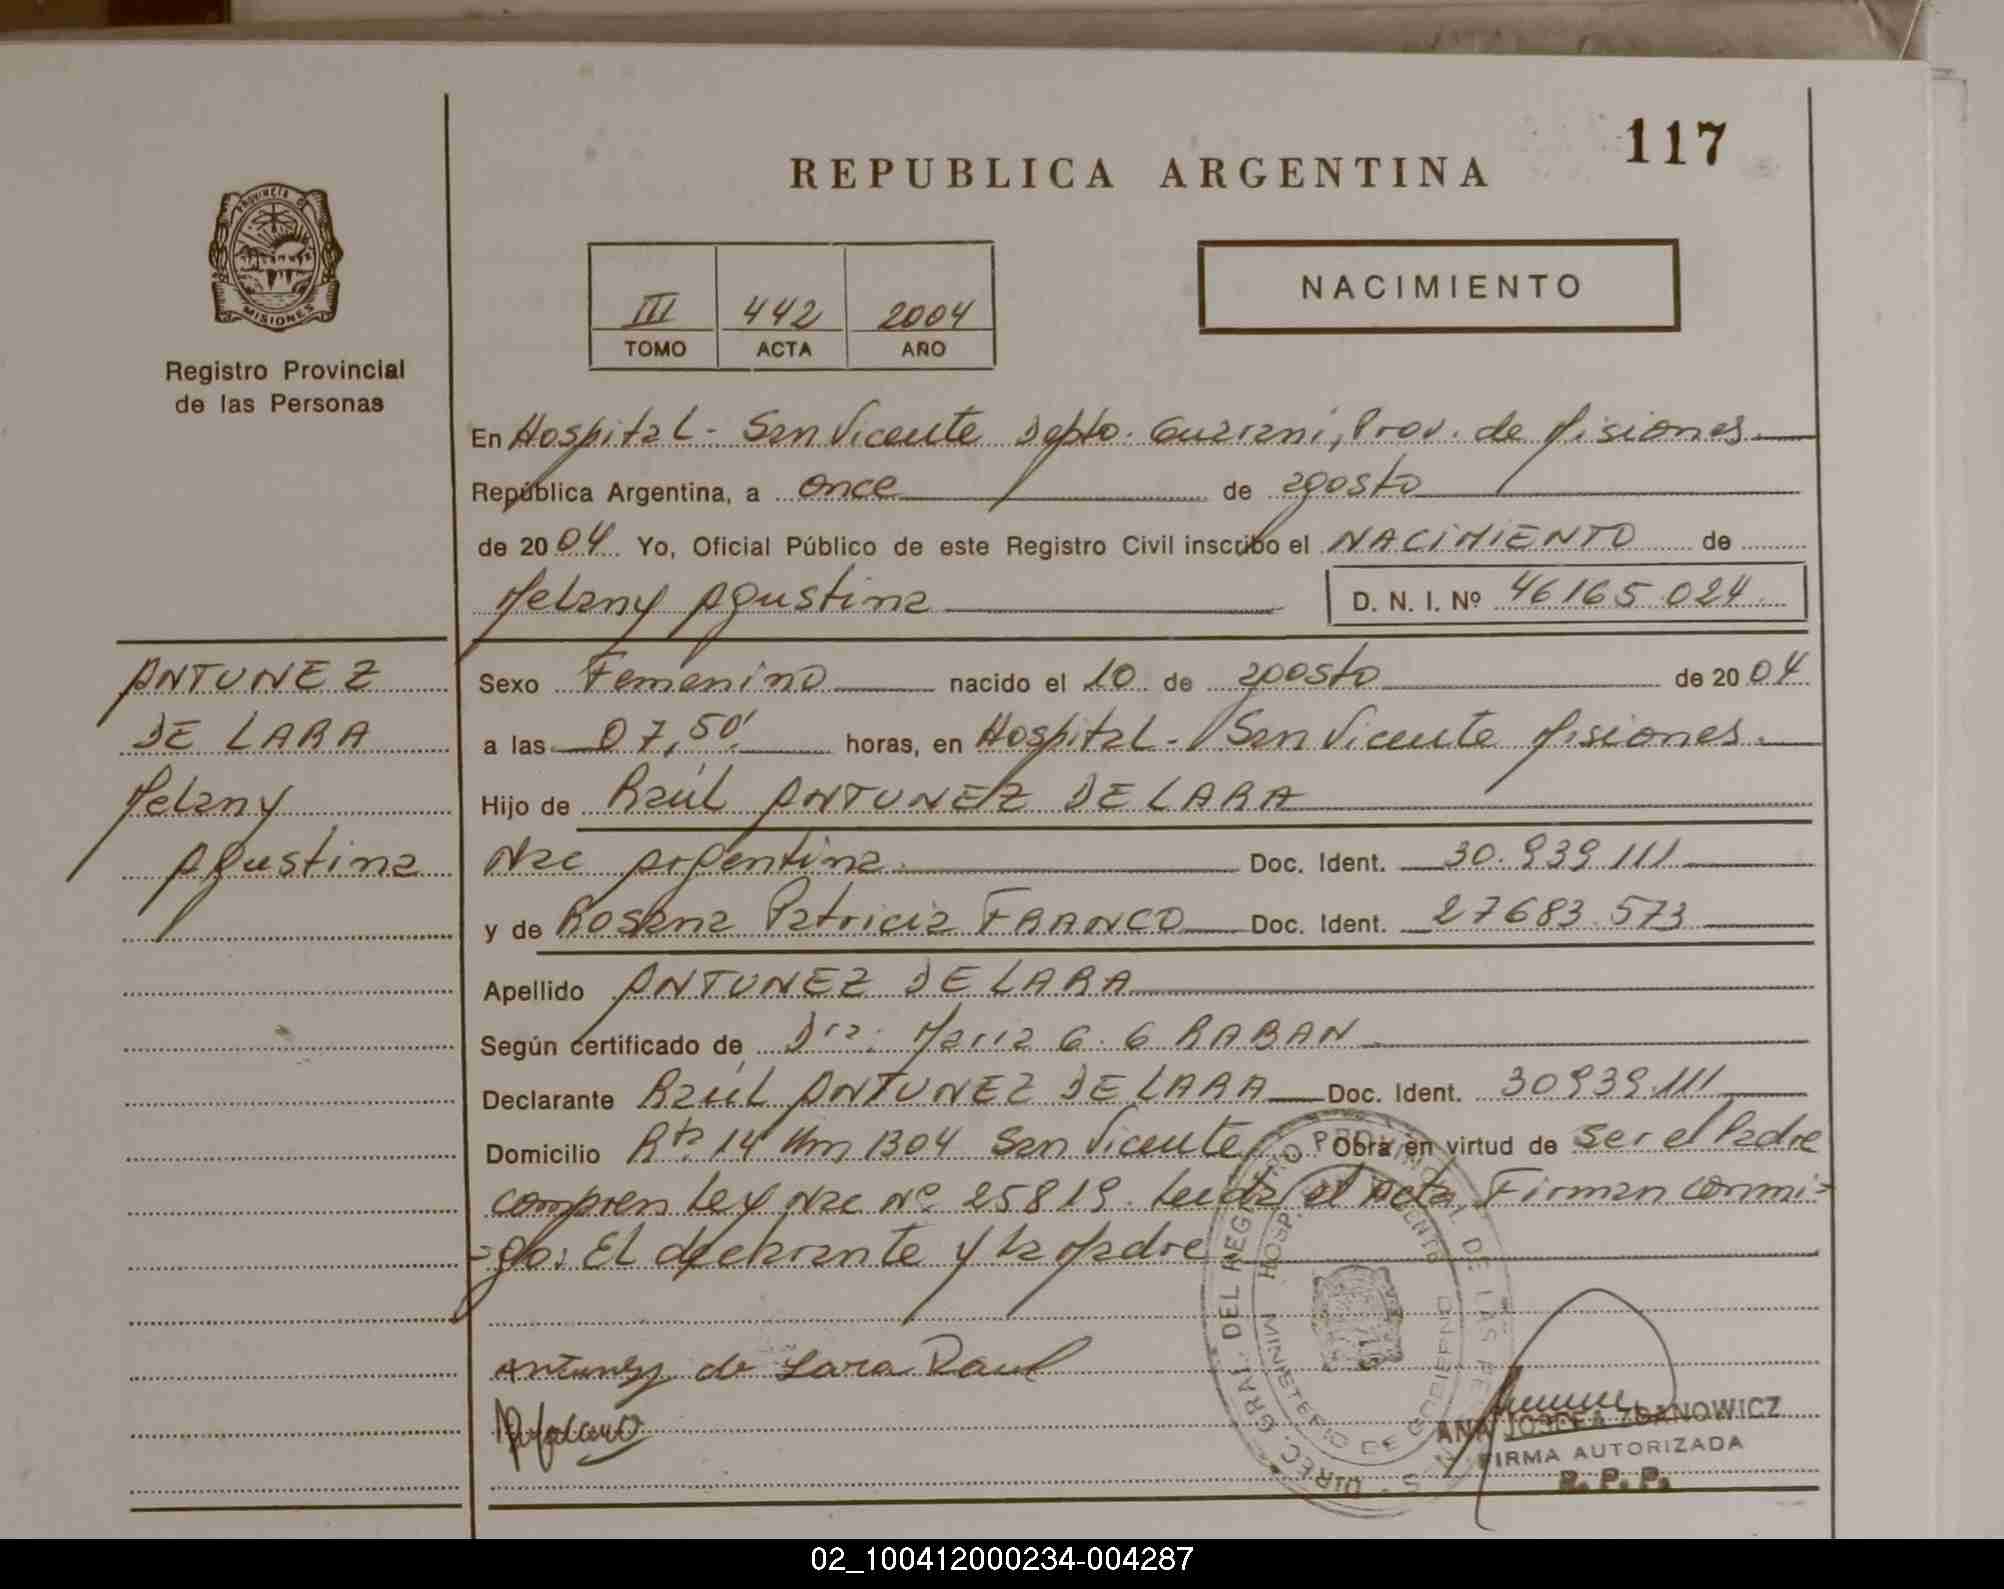 117
REPUBLICA ARGENTINA
PROVINCIA DE
MISIONES
Registro Provincial
de las Personas
III 442 2004
TOMO ACTA AÑO
NACIMIENTO
En Hospital - San Vicente Depto. Guarani, Prov. de Misiones
República Argentina, a once de agosto
de 2004 Yo, Oficial Público de este Registro Civil inscribo el NACIMIENTO de
Melany Agustina D. N. I. Nº 46165.024
ANTUNEZ
DE LARA
Melany
Agustina
Sexo Femenino nacido el 10 de agosto de 2004
a las 07,50' horas, en Hospital - San Vicente Misiones.
Hijo de Raúl ANTUNEZ DE LARA
Nac Argentina. Doc. Ident. 30.939.111
y de Rosana Patricia FRANCO Doc. Ident. 27683.573
Apellido ANTUNEZ DE LARA
Según certificado de Dra: Maria G. G RABAN
Declarante Raúl ANTUNEZ DE LARA Doc. Ident. 30939.111
Domicilio Rta. 14 Km 1304 San Vicente Obra en virtud de Ser el Padre
compren Ley Nac Nº 25819. Leida el Acta Firman conmi-
-go: El declarante y la Madre
Antunez de Lara Raul
DIREC. GRAL. DEL REGISTRO PROVINCIAL DE LAS PERSONAS
MINISTERIO DE GOBIERNO
HOSP.
ANA JOSEFA ZDANOWICZ
FIRMA AUTORIZADA
R. P. P.
02_100412000234-004287